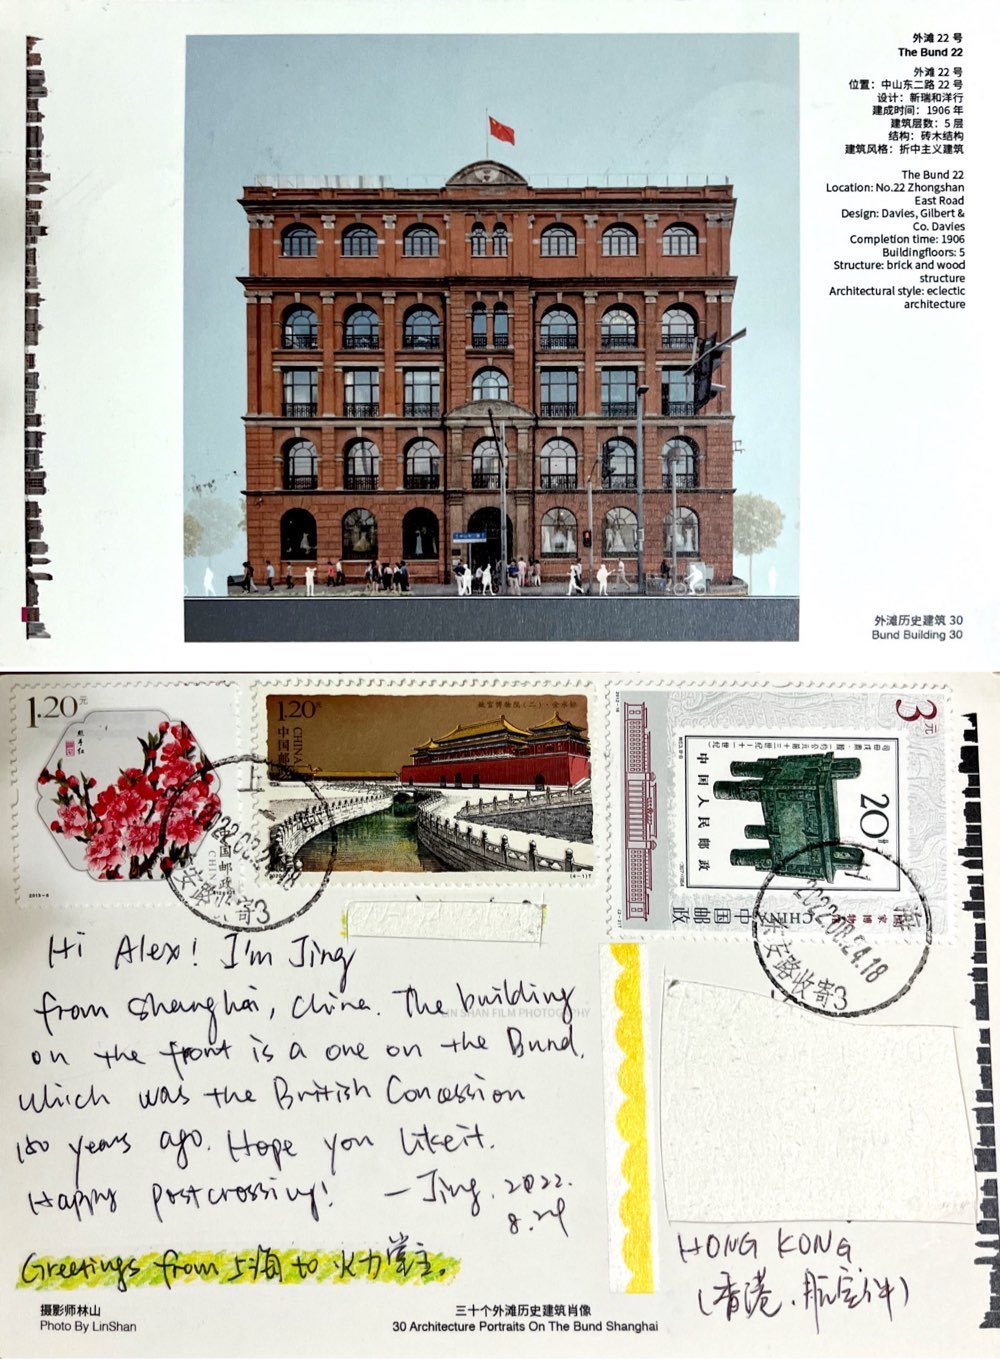 外滩 22 号
The Bund 22
外滩 22 号
位置：中山东二路 22 号
设计：新瑞和洋行
建成时间：1906 年
建筑层数：5 层
结构：砖木结构
建筑风格：折中主义建筑
The Bund 22
Location: No.22 Zhongshan
East Road
Design: Davies, Gilbert &
Co. Davies
Completion time: 1906
Buildingfloors: 5
Structure: brick and wood
structure
Architectural style: eclectic
architecture
外滩历史建筑 30
Bund Building 30
1.20元
中国邮政
CHINA
2013-6
1.20元
故宫博物院（二）·金水桥
CHINA
中国邮政
3元
20
中国人民邮政
中国邮政
CHINA
2022.08.24.18
东安路收寄3
2022.08.24.18
东安路收寄3
Hi Alex! I'm Jing
from Shanghai, China. The building
LIN SHAN FILM PHOTOGRAPHY
on the front is a one on the Bund,
which was the British Concession
150 years ago. Hope you like it.
Happy postcrossing!
— Jing. 2022.
8.24
Greetings from 上海 to 火力堂主.
HONG KONG
(香港、航空件)
摄影师林山
Photo By LinShan
三十个外滩历史建筑肖像
30 Architecture Portraits On The Bund Shanghai